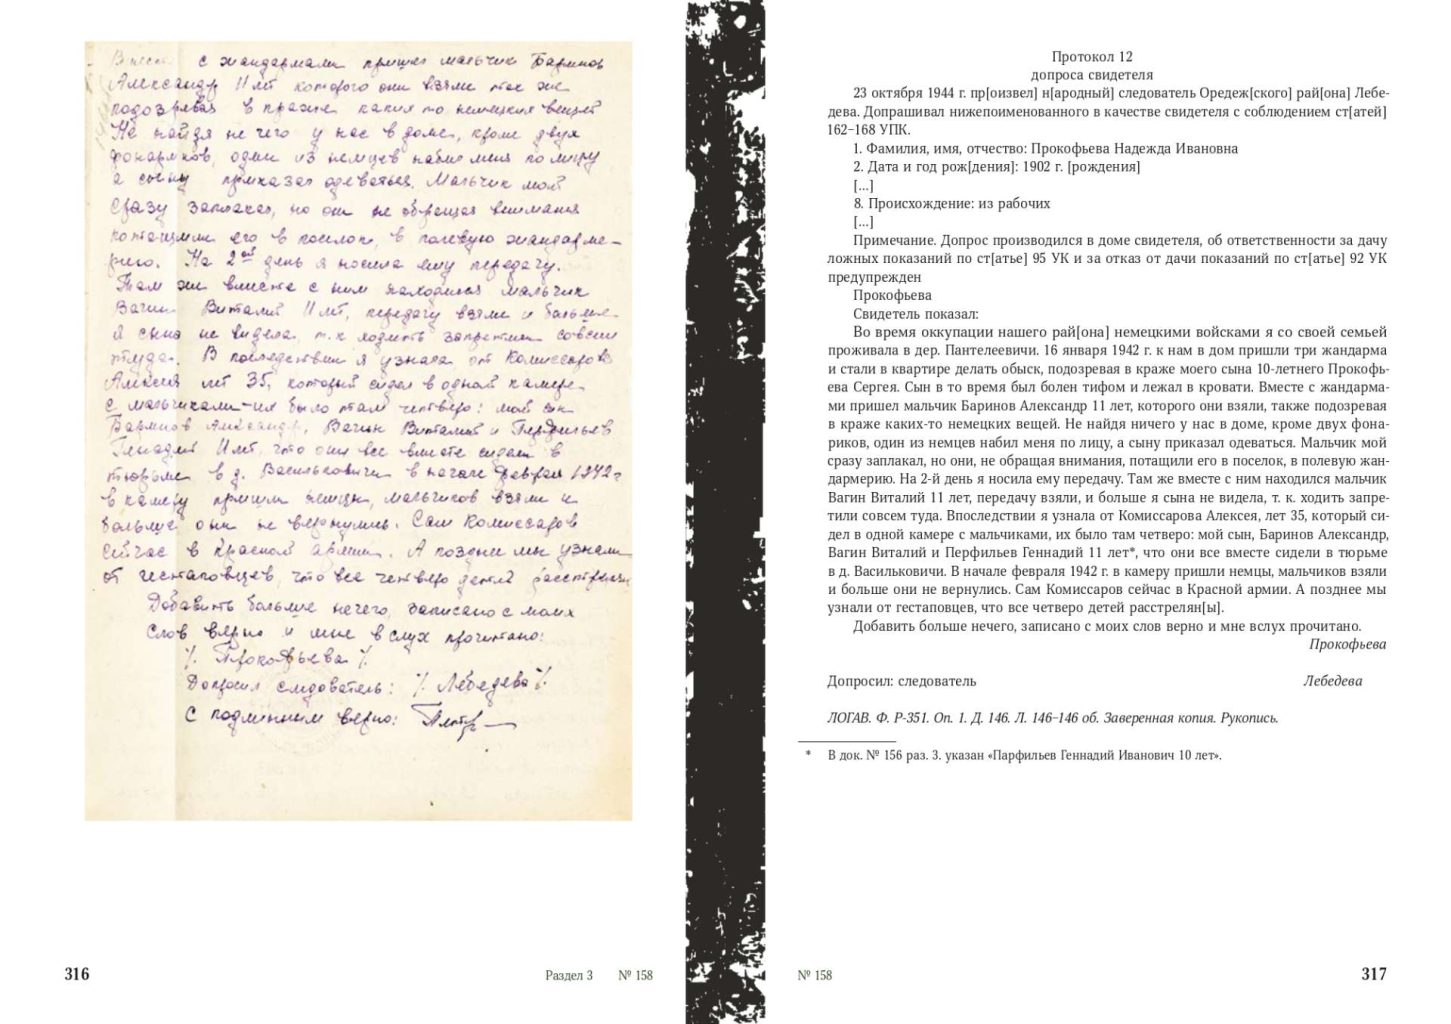 Вместе с жандармами пришел мальчик Баринов
Александр 11 лет которого они взяли так же
подозревая в краже каких то немецких вещей
Не найдя не чего у нас в доме, кроме двух
фонариков, один из немцев набил меня по лицу
а сыну приказал одеваться. Мальчик мой
сразу заплакал, но они не обращая внимания
потащили его в поселок, в полевую жандарме-
рию. На 2ой день я носила ему передачу.
Там же вместе с ним находился мальчик
Вагин Виталий 11 лет, передачу взяли и больше
я сына не видела т.к ходить запретили совсем
туда. В последствии я узнала от Комиссарова
Алексея лет 35, который сидел в одной камере
с мальчиками-их было там четверо: мой сын
Баринов Александр, Вагин Виталий и Перфильев
Генадий 11 лет, что они все вместе сидели в
тюрьме в д. Васильковичи в начале февраля 1942 г
в камеру пришли немцы, мальчиков взяли и
больше они не вернулись. Сам Комиссаров
сейчас в Красной армии. А поздней мы узнали
от гестаповцев, что все четверо детей расстрелян
Добавить больше нечего, записано с моих
слов верно и мне вслух прочитано:
/. Прокофьева /.
Допросил следователь: /. Лебедева /.
С подлинным верно:
316
Раздел 3 № 158
Протокол 12
допроса свидетеля
23 октября 1944 г. пр[оизвел] н[ародный] следователь Оредеж[ского] рай[она] Лебе-
дева. Допрашивал нижепоименованного в качестве свидетеля с соблюдением ст[атей]
162–168 УПК.
1. Фамилия, имя, отчество: Прокофьева Надежда Ивановна
2. Дата и год рож[дения]: 1902 г. [рождения]
[...]
8. Происхождение: из рабочих
[...]
Примечание. Допрос производился в доме свидетеля, об ответственности за дачу
ложных показаний по ст[атье] 95 УК и за отказ от дачи показаний по ст[атье] 92 УК
предупрежден
Прокофьева
Свидетель показал:
Во время оккупации нашего рай[она] немецкими войсками я со своей семьей
проживала в дер. Пантелеевичи. 16 января 1942 г. к нам в дом пришли три жандарма
и стали в квартире делать обыск, подозревая в краже моего сына 10-летнего Прокофь-
ева Сергея. Сын в то время был болен тифом и лежал в кровати. Вместе с жандарма-
ми пришел мальчик Баринов Александр 11 лет, которого они взяли, также подозревая
в краже каких-то немецких вещей. Не найдя ничего у нас в доме, кроме двух фона-
риков, один из немцев набил меня по лицу, а сыну приказал одеваться. Мальчик мой
сразу заплакал, но они, не обращая внимания, потащили его в поселок, в полевую жан-
дармерию. На 2-й день я носила ему передачу. Там же вместе с ним находился мальчик
Вагин Виталий 11 лет, передачу взяли, и больше я сына не видела, т. к. ходить запре-
тили совсем туда. Впоследствии я узнала от Комиссарова Алексея, лет 35, который си-
дел в одной камере с мальчиками, их было там четверо: мой сын, Баринов Александр,
Вагин Виталий и Перфильев Геннадий 11 лет*, что они все вместе сидели в тюрьме
в д. Васильковичи. В начале февраля 1942 г. в камеру пришли немцы, мальчиков взяли
и больше они не вернулись. Сам Комиссаров сейчас в Красной армии. А позднее мы
узнали от гестаповцев, что все четверо детей расстрелян[ы].
Добавить больше нечего, записано с моих слов верно и мне вслух прочитано.
Прокофьева
Допросил: следователь Лебедева
ЛОГАВ. Ф. Р-351. Оп. 1. Д. 146. Л. 146–146 об. Заверенная копия. Рукопись.
* В док. № 156 раз. 3. указан «Парфильев Геннадий Иванович 10 лет».
№ 158
317